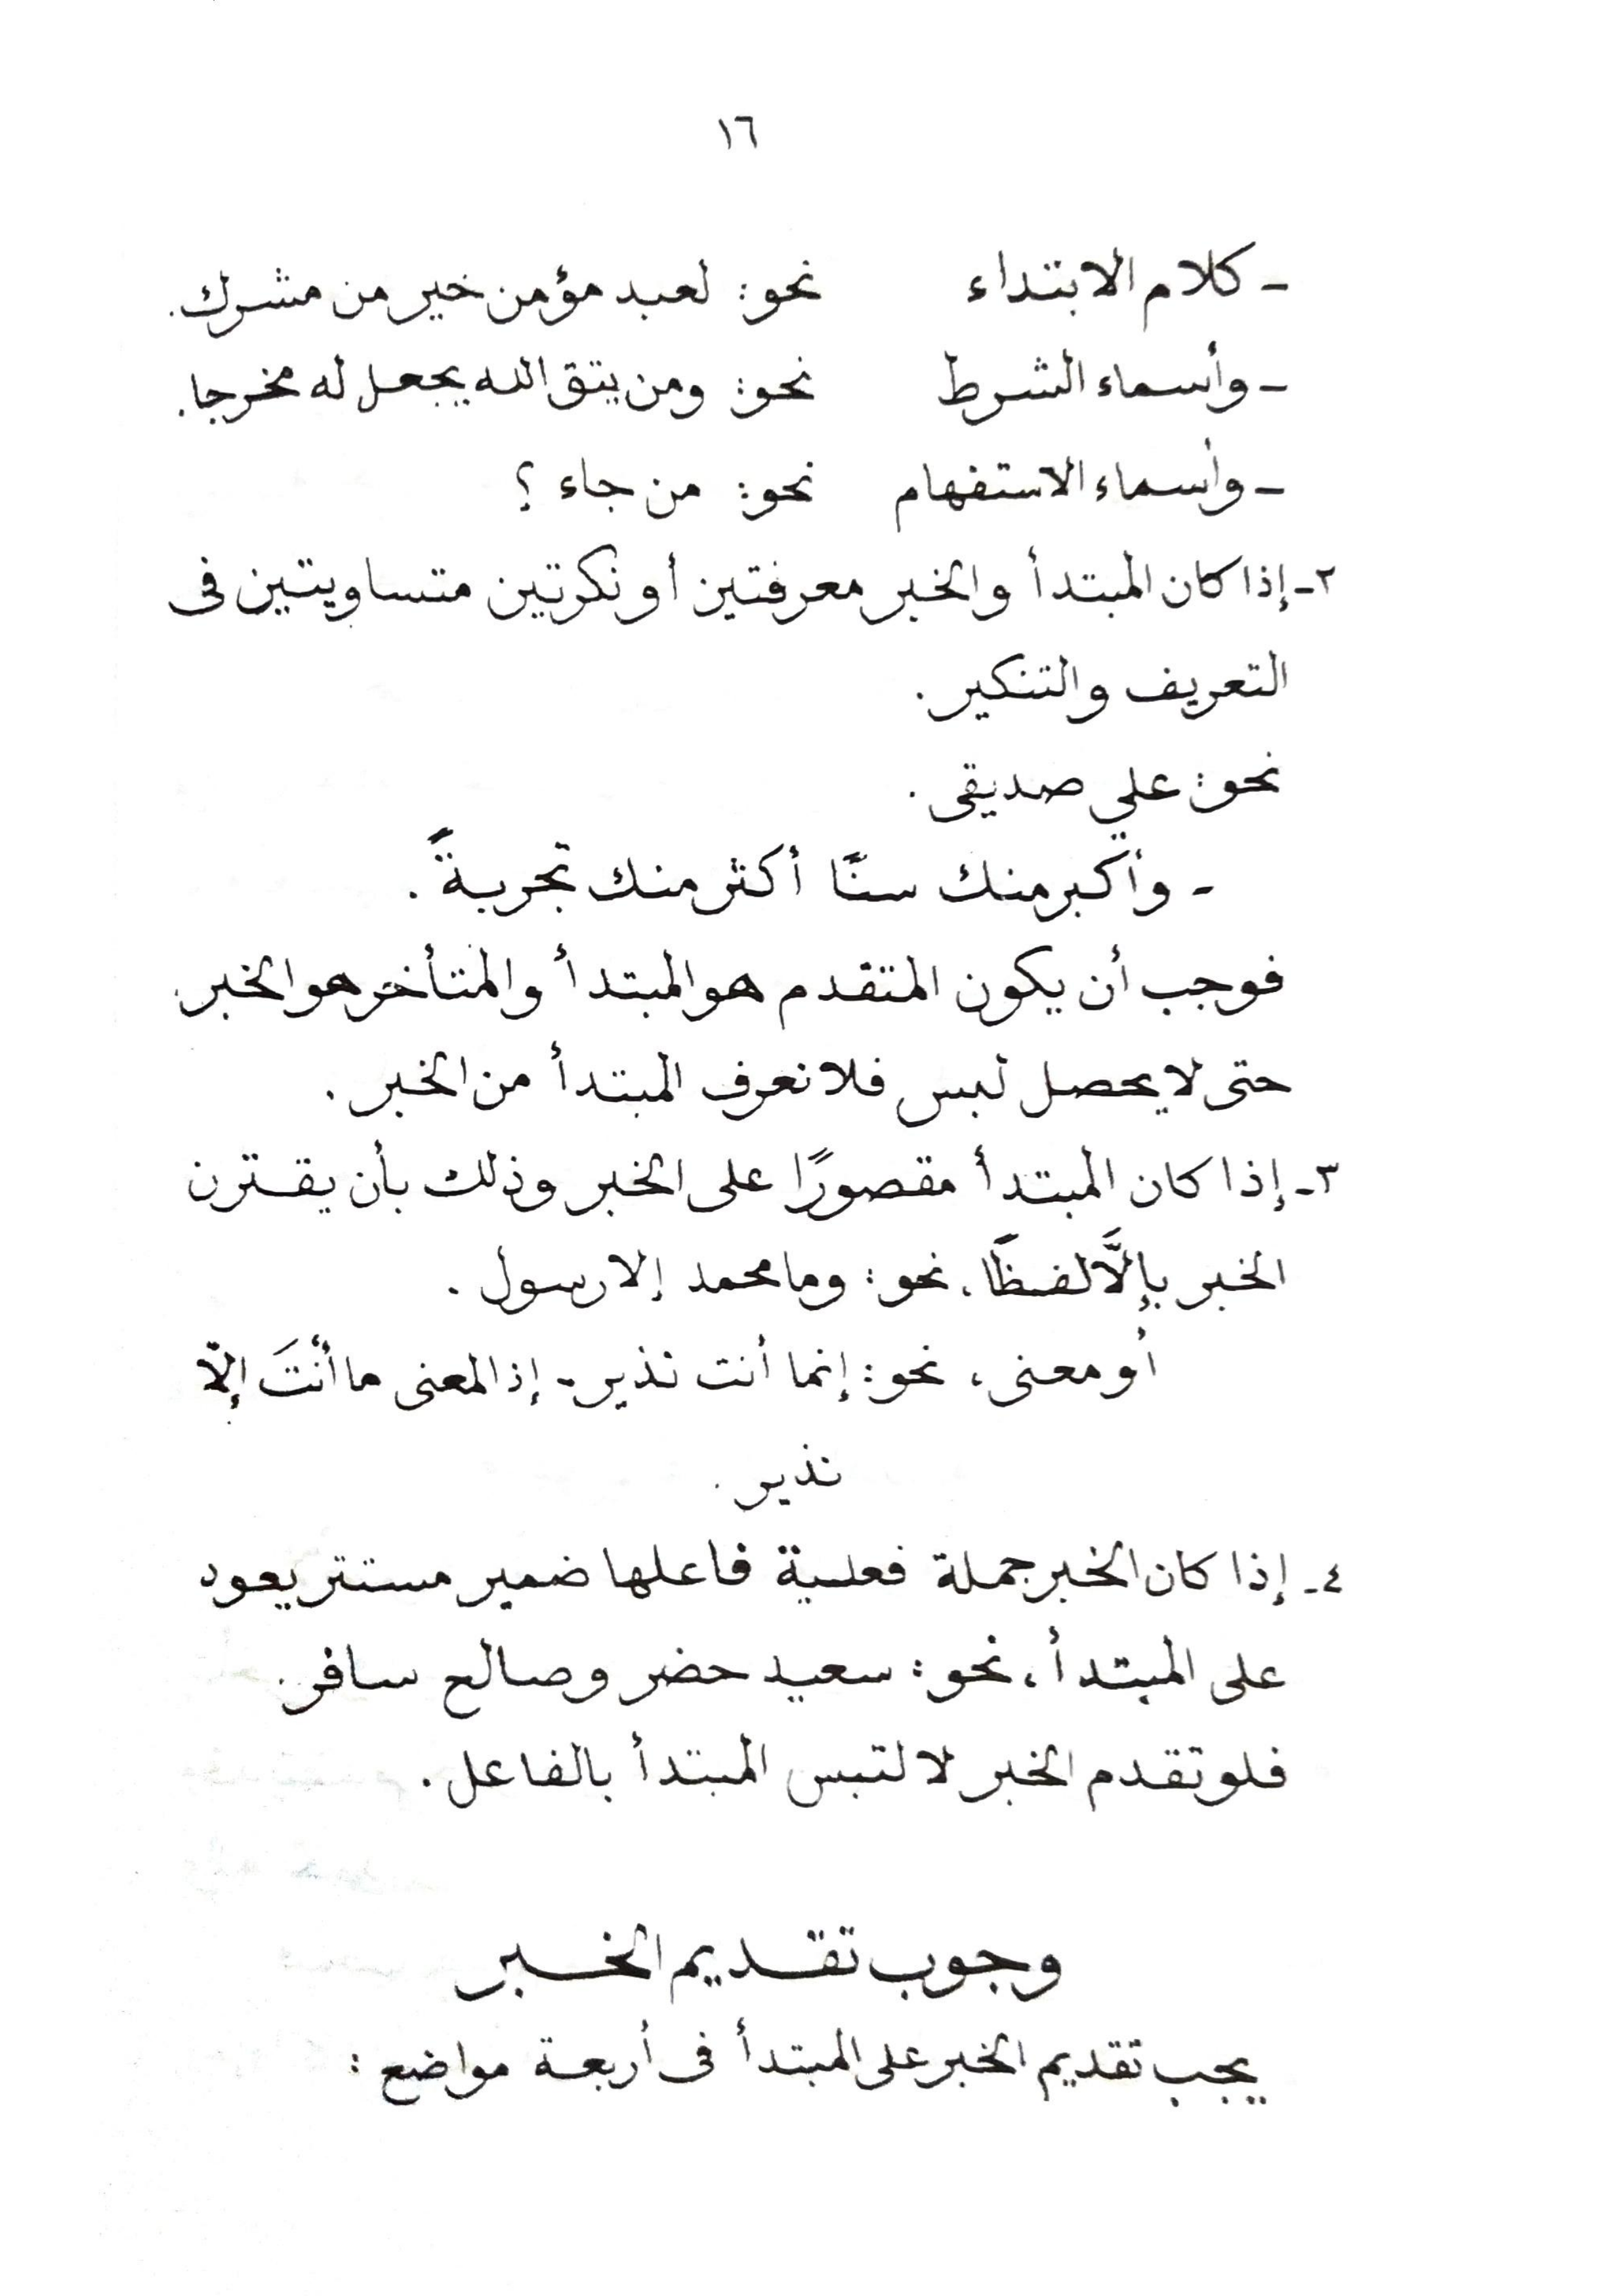 ١٦
- كلام الابتداء نحو: لعبد مؤمن خير من مشرك.
- وأسماء الشرط نحو: ومن يتق الله يجعل له مخرجا.
- وأسماء الاستفهام نحو: من جاء ؟
٢- إذا كان المبتدأ والخبر معرفتين أو نكرتين متساويتين فى
التعريف والتنكير.
نحو: علي صديقى.
- وأكبر منك سنًّا أكثر منك تجربةً.
فوجب أن يكون المتقدم هو المبتدأ والمتأخر هو الخبر
حتى لا يحصل لبس فلا نعرف المبتدأ من الخبر.
٣- إذا كان المبتدأ مقصورًا على الخبر وذلك بأن يقترن
الخبر بإلَّا لفظًا، نحو: وما محمد إلا رسول.
أو معنى، نحو: إنما أنت نذير- إذ المعنى ما أنْتَ إلّا
نذير.
٤- إذا كان الخبر جملة فعلية فاعلها ضمير مستتر يعود
على المبتدأ، نحو: سعيد حضر وصالح سافر.
فلو تقدم الخبر لالتبس المبتدأ بالفاعل.
وجوب تقديم الخبر
يجب تقديم الخبر على المبتدأ فى أربعة مواضع: